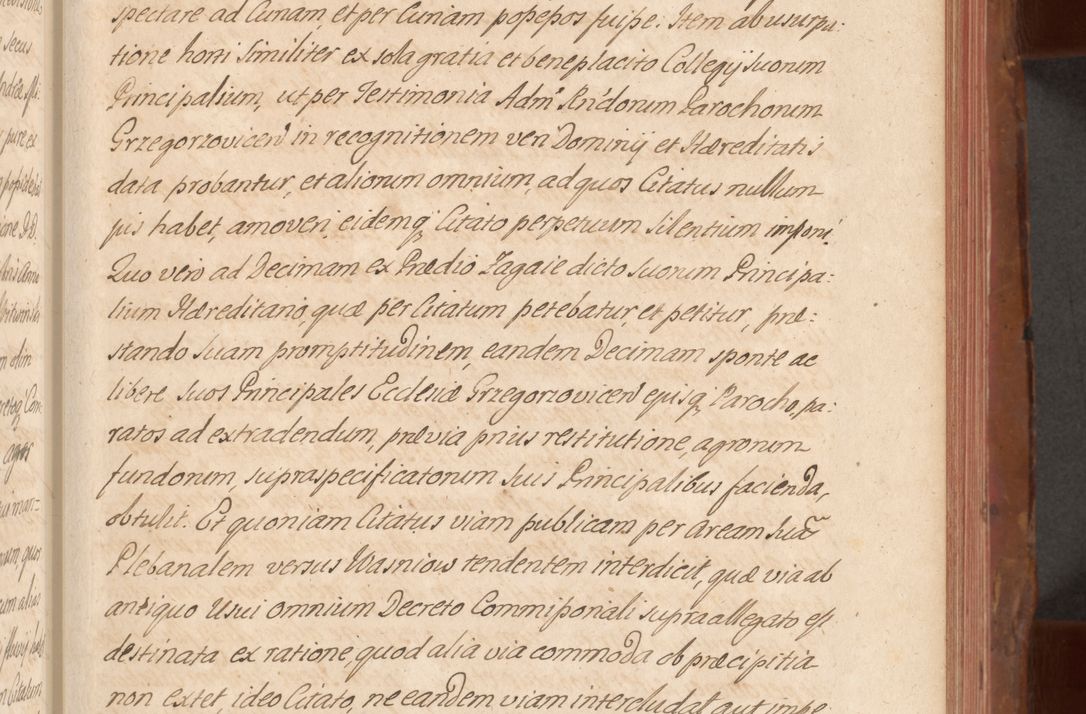 spectare ad Curiam et per Curiam possessos fuisse. Item ab usurpa-
tione horti similiter ex sola gratia et beneplacito Collegij suorum
Principalium, ut per Testimonia Adm. Rndorum Parochorum
Grzegorzovicen in recognitionem veri Dominij et Hæreditatis
data probantur, et aliorum omnium, ad quos Citatus nullum
jus habet, amoveri, eidemq; Citato perpetuum silentium imponi.
Quo vero ad Decimam ex Prædio Zagaie dicto suorum Principa:
lium Hæreditario, quæ per Citatum petebatur, et petitur, præ:
stando suam promptitudinem, eandem Decimam sponte ac
libere suos Principales Ecclesiæ Grzegorzovicen ejusq; Parocho, pa:
ratos ad extradendum, prævia prius restitutione, agrorum
fundorum, supraspecificatorum suis Principalibus facienda,
obtulit. Et quoniam Citatus viam publicam per Aream suã
Plebanalem versus Wasniow tendentem interdicit, quæ via ab
antiquo Usui omnium Decreto Commissionali supra allegato est
destinata ex ratione, quod alia via commoda ob præcipitia
non extet, ideo Citato, ne eandem viam intercludat aut impe-